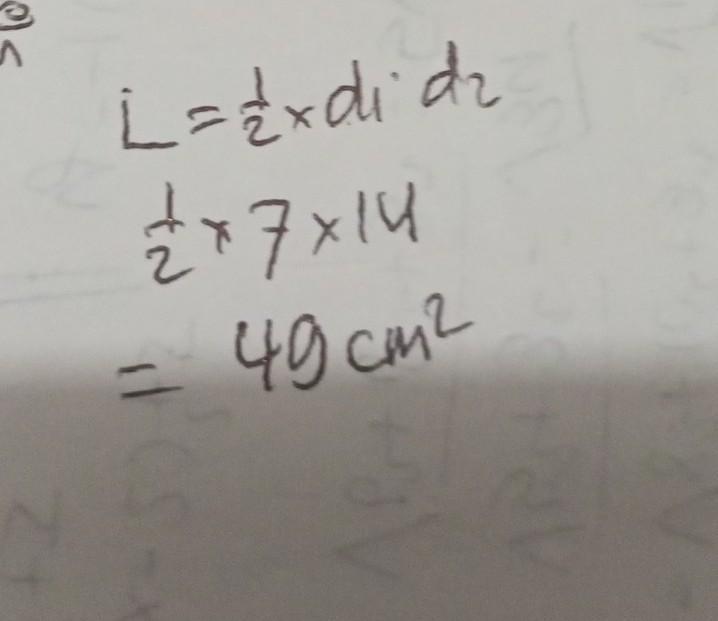 L = 1/2 × d1 · d2
1/2 × 7 × 14
= 49 cm²